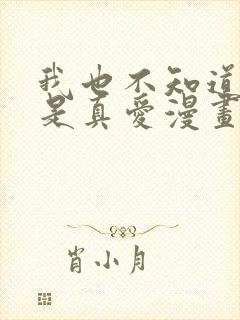 我也不知道
是真愛漫畫
肖小月